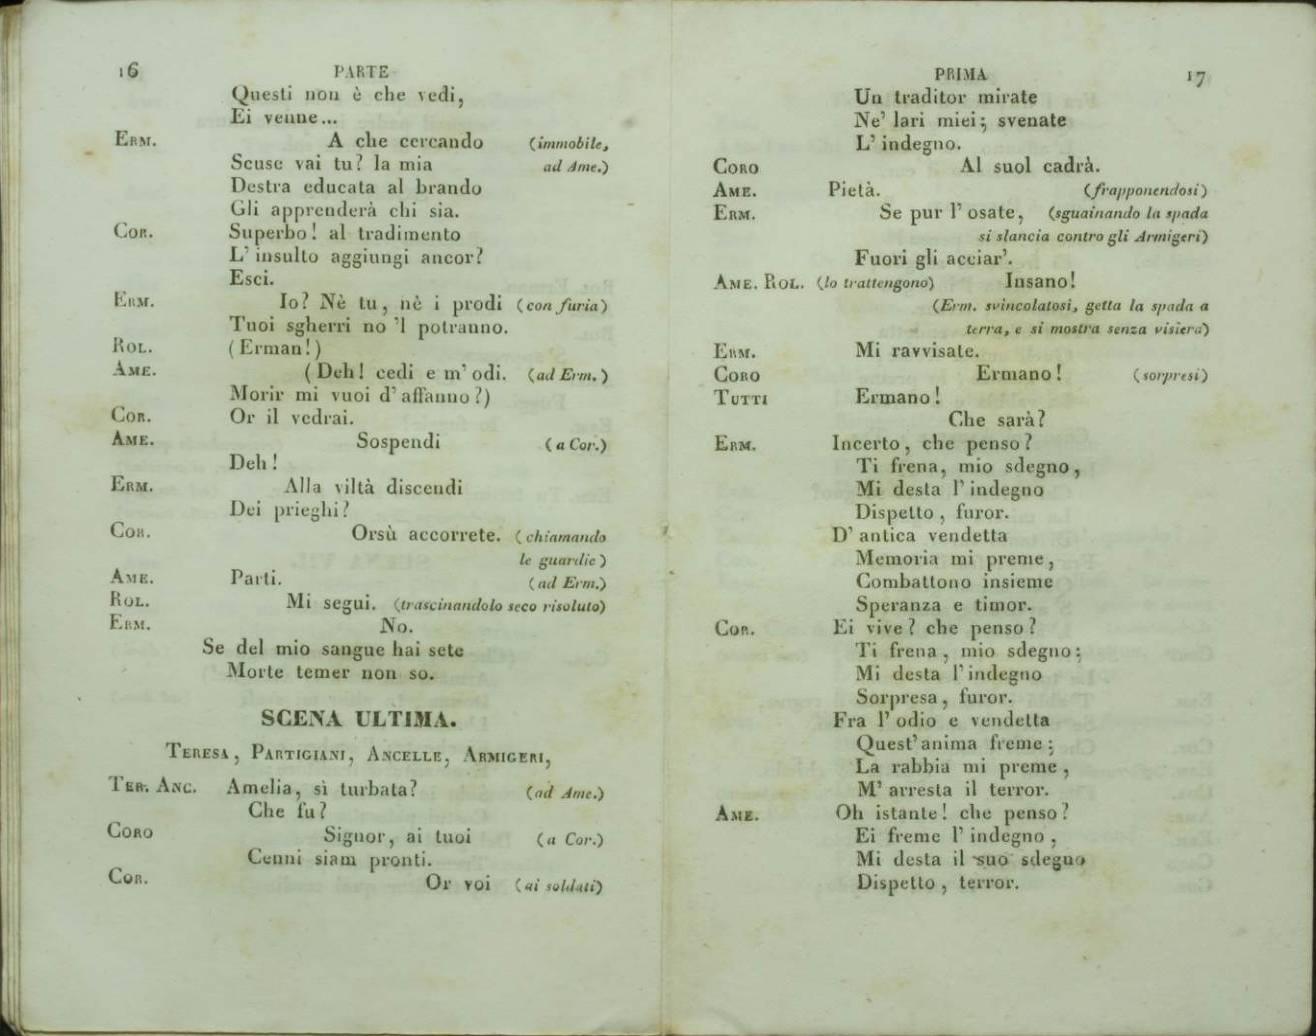 16 PARTE
Questi non è che vedi,
Ei venne...
ERM. A che cercando (immobile,
Scuse vai tu? la mia ad Ame.)
Destra educata al brando
Gli apprenderà chi sia.
COR. Superbo! al tradimento
L' insulto aggiungi ancor?
Esci.
ERM. Io? Nè tu, nè i prodi (con furia)
Tuoi sgherri no 'l potranno.
ROL. (Erman!)
AME. (Deh! cedi e m' odi. (ad Erm.)
Morir mi vuoi d' affanno?)
COR. Or il vedrai.
AME. Sospendi (a Cor.)
Deh!
ERM. Alla viltà discendi
Dei prieghi?
COR. Orsù accorrete. (chiamando
le guardie)
AME. Parti. (ad Erm.)
ROL. Mi segui. (trascinandolo seco risoluto)
ERM. No.
Se del mio sangue hai sete
Morte temer non so.
SCENA ULTIMA.
TERESA, PARTIGIANI, ANCELLE, ARMIGERI,
TER. ANC. Amelia, sì turbata? (ad Ame.)
Che fu?
CORO Signor, ai tuoi (a Cor.)
Cenni siam pronti.
COR. Or voi (ai soldati)
PRIMA 17
Un traditor mirate
Ne' lari miei; svenate
L' indegno.
CORO Al suol cadrà.
AME. Pietà. (frapponendosi)
ERM. Se pur l' osate, (sguainando la spada
si slancia contro gli Armigeri)
Fuori gli acciar'.
AME. ROL. (lo trattengono) Insano!
(Erm. svincolatosi, getta la spada a
terra, e si mostra senza visiera)
ERM. Mi ravvisate.
CORO Ermano! (sorpresi)
TUTTI Ermano!
Che sarà?
ERM. Incerto, che penso?
Ti frena, mio sdegno,
Mi desta l' indegno
Dispetto, furor.
D' antica vendetta
Memoria mi preme,
Combattono insieme
Speranza e timor.
COR. Ei vive? che penso?
Ti frena, mio sdegno;
Mi desta l' indegno
Sorpresa, furor.
Fra l' odio e vendetta
Quest' anima freme;
La rabbia mi preme,
M' arresta il terror.
AME. Oh istante! che penso?
Ei freme l' indegno,
Mi desta il suo sdegno
Dispetto, terror.